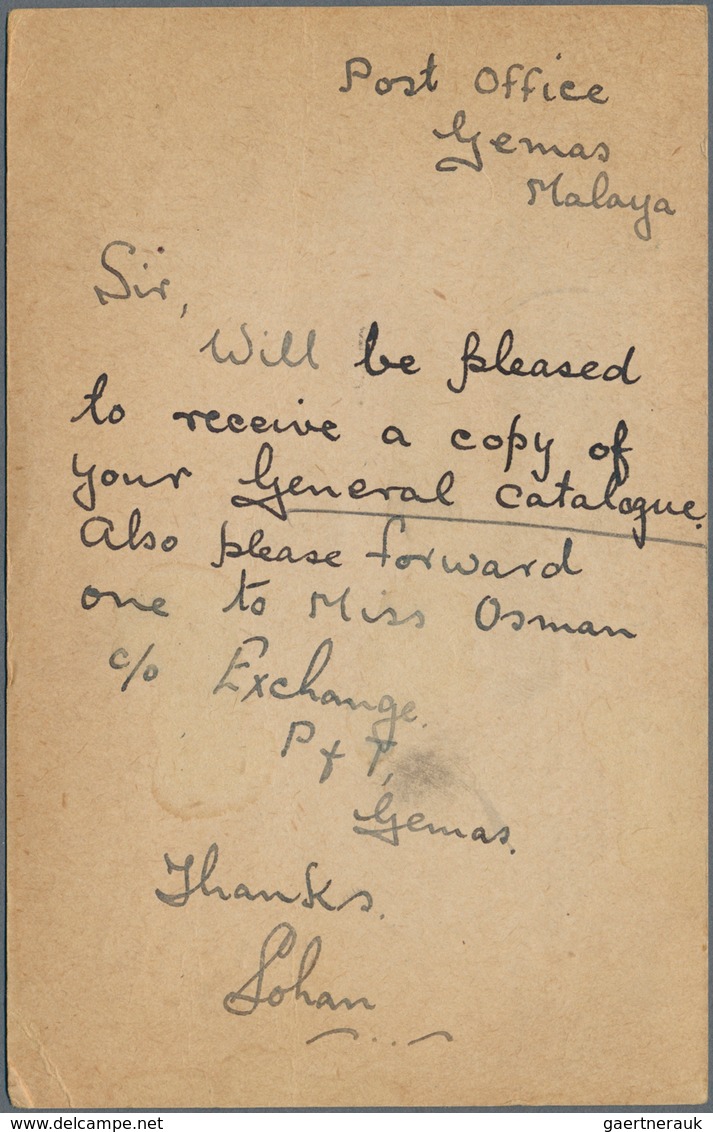 Post Office
Gemas
Malaya
Sir,
Will be pleased
to receive a copy of
your General catalogue.
Also please forward
one to Miss Osman
c/o Exchange.
P & T,
Gemas.
Thanks.
Sohan
www.delcampe.net
gaertnerauk